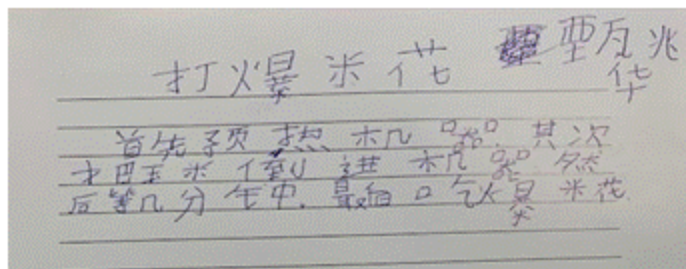 打爆米花 瓦兆
华
首先预热机器.其次
把玉米倒进机器然
后等几分钟.最后口欠爆米花